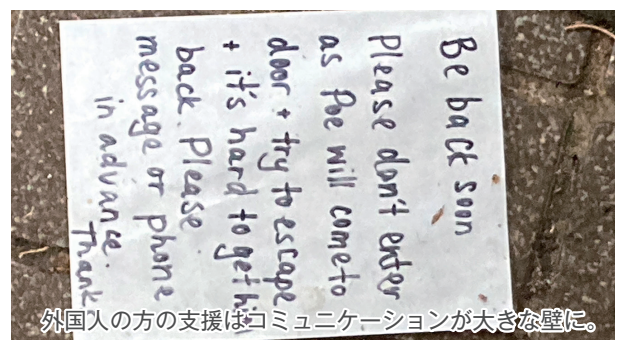 Be back soon
Please don't enter
as Poe will come to
door + try to escape
+ it's hard to get
back. Please
message or phone
in advance.
Thank
外国人の方の支援はコミュニケーションが大きな壁に。